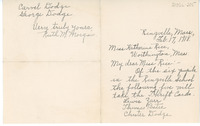 Carrol Dodge
George Dodge
Very truly yours,
Ruth W. Morgan
Ringville, Mass.
Feb. 17, 1918
Miss Katharine Rice,
Worthington, Mass.
My dear Miss Rice:-
Of the six pupils
in the Ringville School
the following five will
take the Thrift Cards
Charles Dodge